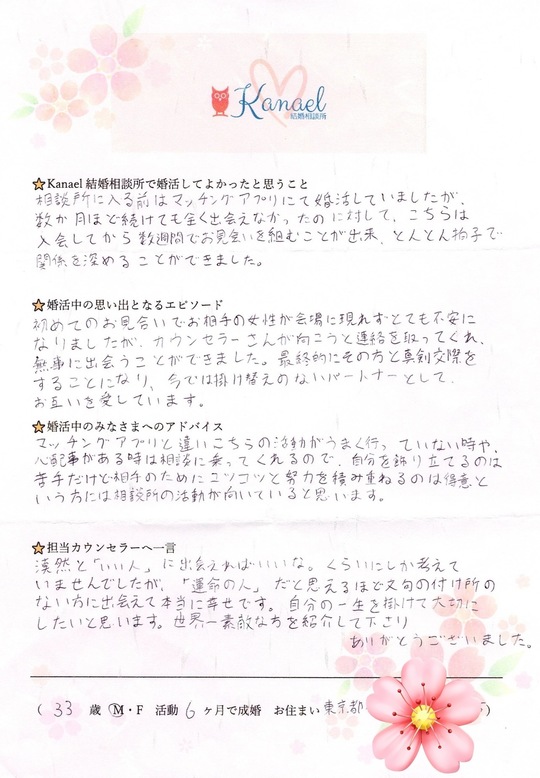 Kanael
結婚相談所
Kanael 結婚相談所で婚活してよかったと思うこと
相談所に入る前はマッチングアプリにて婚活していましたが、
数か月ほど続けても全く出会えなかったのに対して、こちらは
入会してから数週間でお見合いを組むことが出来、とんとん拍子で
関係を深めることができました。
婚活中の思い出となるエピソード
初めてのお見合いでお相手の女性が会場に現れずとても不安に
なりましたが、カウンセラーさんが向こうと連絡を取ってくれ、
無事に出会うことができました。最終的にその方と真剣交際を
することになり、今では掛け替えのないパートナーとして、
お互いを愛しています。
婚活中のみなさまへのアドバイス
マッチングアプリと違いこちらの活動がうまく行っていない時や、
心配事がある時は相談に乗ってくれるので、自分を飾り立てるのは
苦手だけど相手のためにコツコツと努力を積み重ねるのは得意と
いう方には相談所の活動が向いていると思います。
担当カウンセラーへ一言
漠然と「いい人」に出会えればいいな。くらいにしか考えて
いませんでしたが、「運命の人」だと思えるほど文句の付け所の
ない方に出会えて本当に幸せです。自分の一生を掛けて大切に
したいと思います。世界一素敵な方を紹介して下さり
ありがとうございました。
( 33 歳 M・F 活動 6 ヶ月で成婚 お住まい 東京都 )